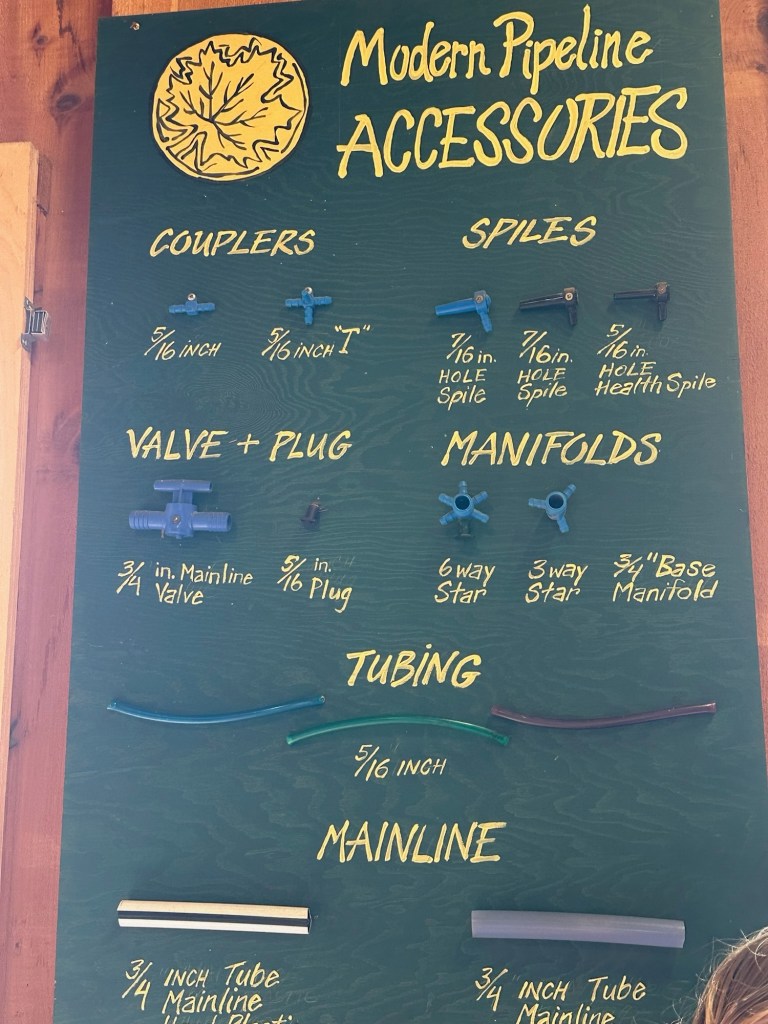 Modern Pipeline
ACCESSORIES
COUPLERS
5/16 INCH
5/16 INCH "T"
SPILES
7/16 in.
HOLE
Spile
7/16 in.
HOLE
Spile
5/16 in.
HOLE
Health Spile
VALVE + PLUG
3/4 in. Mainline
Valve
5/16 in.
Plug
MANIFOLDS
6 way
Star
3 way
Star
3/4" Base
Manifold
TUBING
5/16 INCH
MAINLINE
3/4 INCH Tube
Mainline
3/4 INCH Tube
Mainline